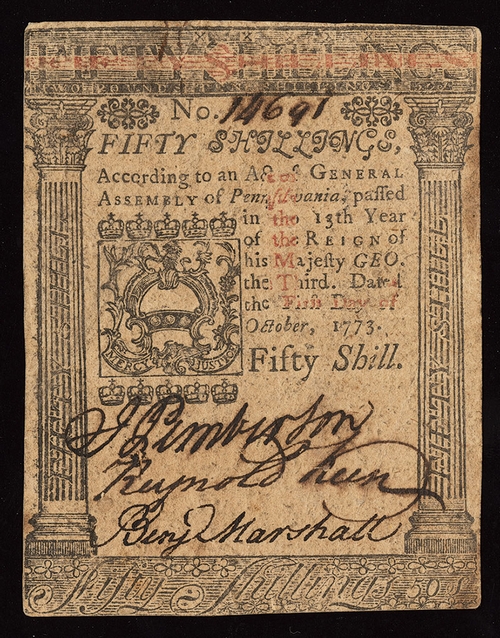 FIFTY SHILLINGS
No. 14691
FIFTY SHILLINGS,
According to an Act of GENERAL
ASSEMBLY of Pennſylvania, paſſed
in the 13th Year
of the REIGN of
his Majeſty GEO.
the Third. Dated
the Firſt Day of
October, 1773.
MERCY JUSTICE
Fifty Shill.
J Pemberton
Reynold Keen
Benj Marshall
Fifty Shillings